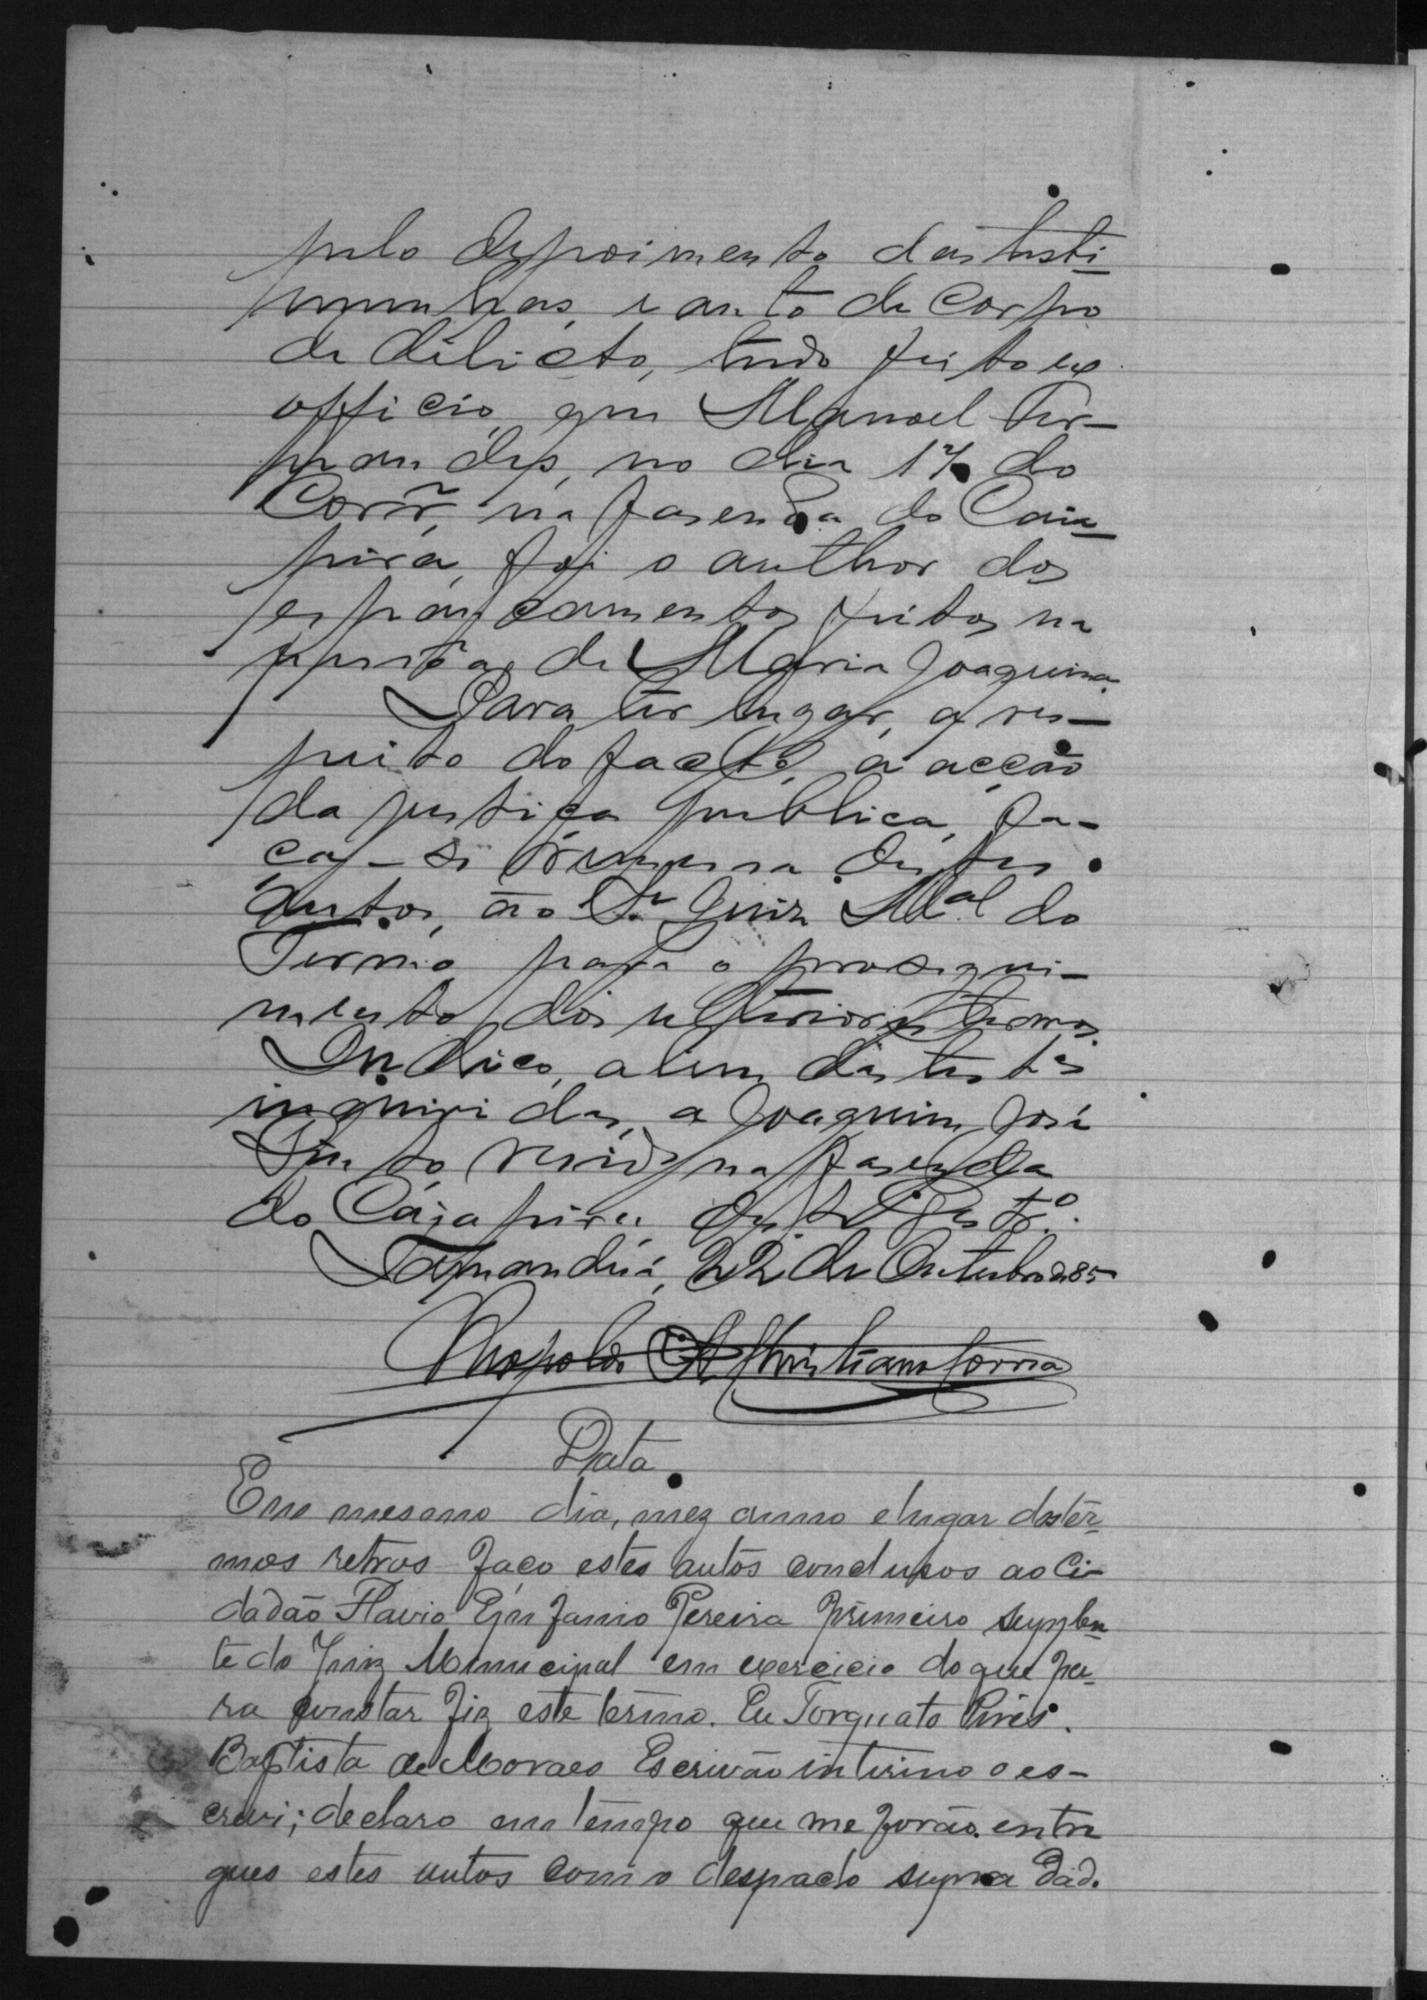 pelo depoimento das teste-
munhas, e auto de Corpo
de delicto, tudo feito ex
officio, que Manoel Fer-
nandes, no dia 17 do
Corr.e, na fasenda do Caia-
pira, foi o author dos
espancamentos feitos na
pessôa de Maria Joaquina.
Para ter lugar, a res-
peito do facto, a acção
da justiça publica, fa-
ça-se remessa destes
autos, ao Sr. Juiz Mal do
Termo para o prosegui-
mento dos ulteriores termos.
Indico, alem das testas
inquiridas, a Joaquim José
Pinto, resid.e na fasenda
do Caiapira, deste
Tamanduá, 22 de Outubro de 85
Leopoldo Christiano Correa
Data
Em mesmo dia, mez anno e lugar dos ter-
mos retros faço estes autos conclusos ao Ci-
dadão Flavio Pereira primeiro supplen-
te do Juiz Municipal em exercicio do que pa-
ra constar fiz este termo. Eu Torquato Pires
Baptista de Moraes Escrivão interino o es-
crevi; declaro em tempo que me forão entre
gues estes autos com o despacho supra